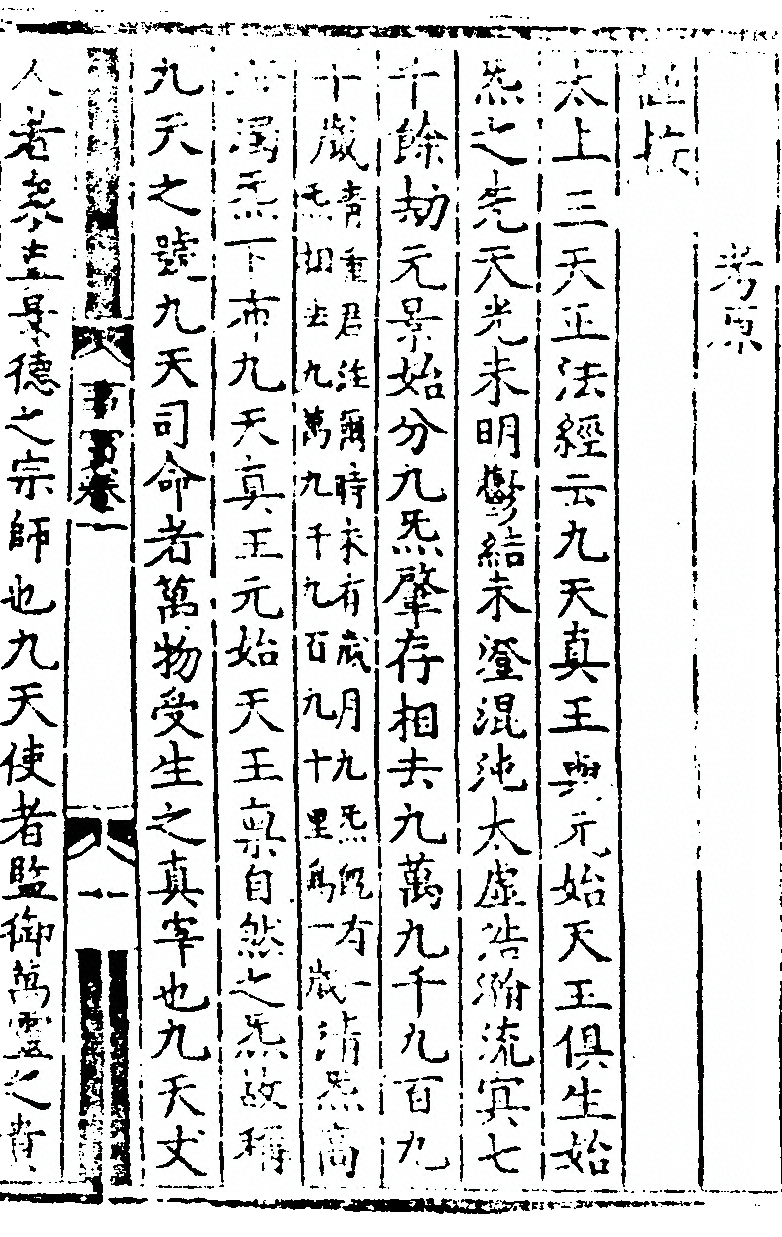 考原
太上三天正法經云九天真王與元始天王俱生始
炁之先天光未明鬱結未澄混沌太虛浩瀚流冥七
十餘劫元景始分九炁肇存相去九萬九千九百九
十歲青童君注爾時未有歲月九炁旣有一
炁相去九萬九千九百九十里爲一歲清炁高
濁炁下布九天真王元始天王禀自然之炁故稱
九天之號九天司命者萬物受生之真宰也九天丈
卷一
一
人者象五景德之宗師也九天使者監御萬靈之貴